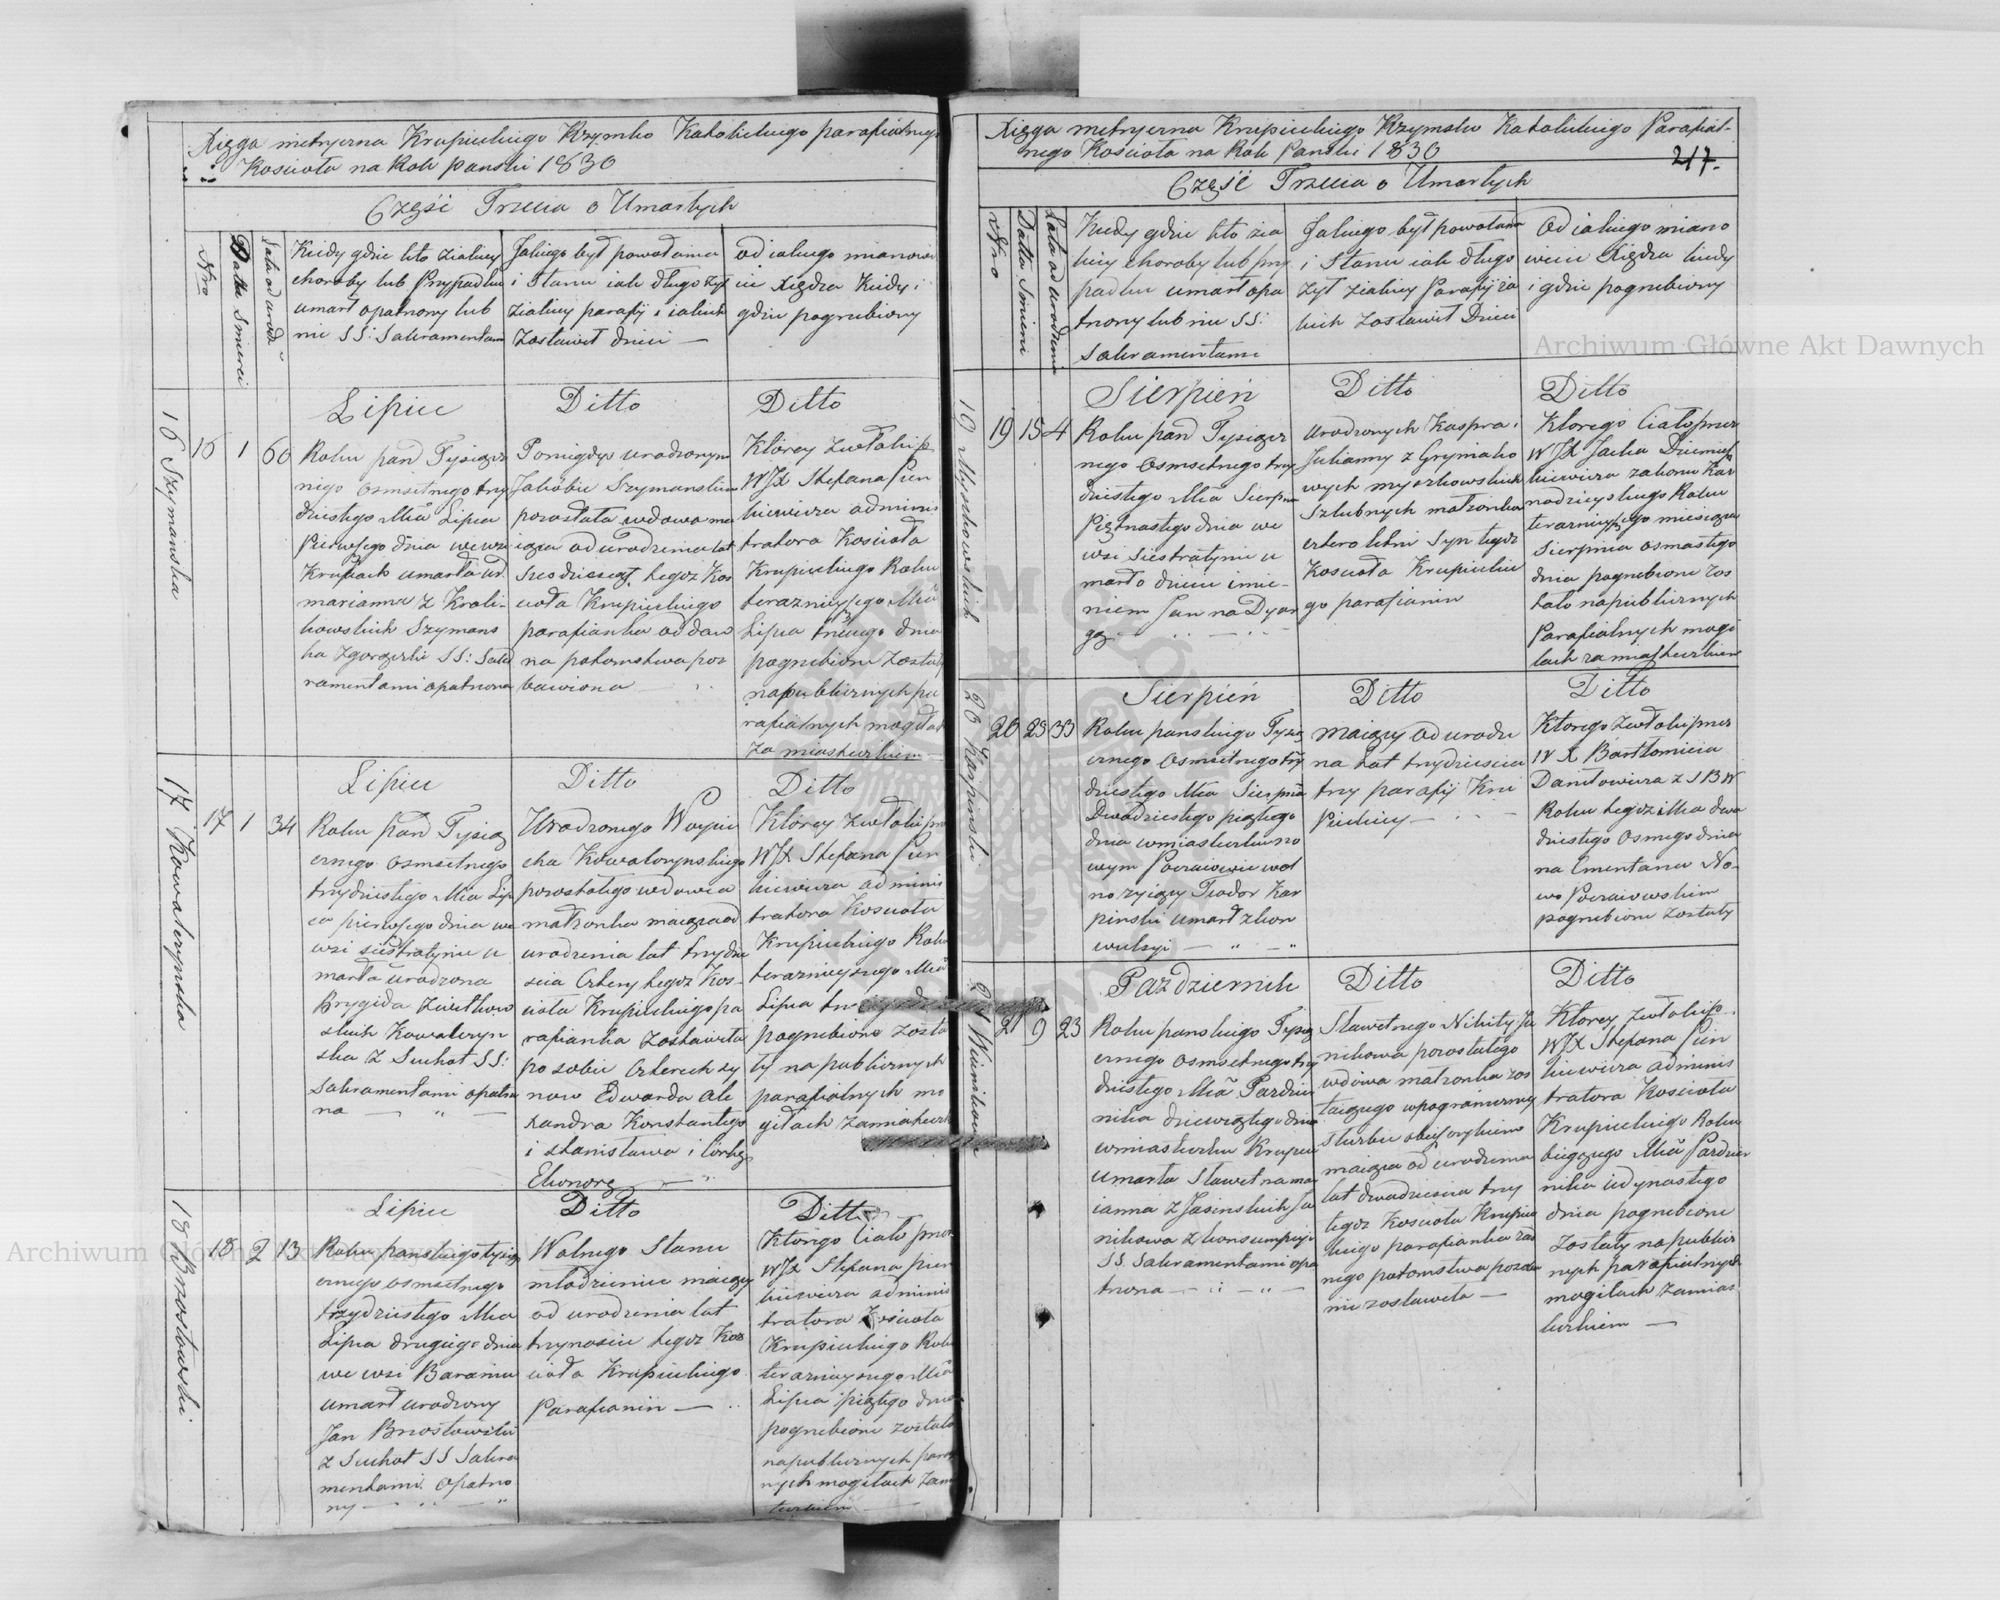 Xięga metryczna Krupieckiego Rzymsko Katolickiego parafialnego
Kościoła na Rok panski 1830
Część Trzecia o Umarłych
Nro
Datta Smierci
Lata od urodz
Kiedy gdzie kto z iakiey
choroby lub Przypadku
umarł opatrzony lub
nie SS: Sakramentam
Jakiego był powołania
i Stanu iak długo żył
z iakiey parafij i iakich
zostawił dzieci —
od iakiego mianowi
cie Xiędza Kiedy i
gdzie pogrzebiony
16 Szymańska
16
1
60
Lipiec
Roku pań Tysiącz
nego osmsetnego trzy
dziestego Mca Lipca
Pierwszego dnia we wsi
Krupach umarła ur.
marianna z Kroli
kowskich Szymans
ka z gorączki SS: Sak
ramentami opatrzona
Ditto
Pomiędzy urodzonym
Jakobie Szymanskim
pozostała wdowa ma
iąca od urodzenia lat
Szesdziesiąt tegoż Koś
cioła Krupieckiego
parafianka od daw
na potomstwa poz
bawiona —
Ditto
Ktorey zwłoki p.
WJX Stefana Pien
kiewicza adminis
tratora Kościoła
Krupieckiego Roku
teraznieyszego Mca
Lipca trzeciego dnia
pogrzebione zostały
na publicznych pa
rafialnych mogiłach
za miasteczkiem —
17 Kowalczynska
17
1
34
Lipiec
Roku pań Tysiąc
cznego osmsetnego
trzydziestego Mca Lip
ca pierwszego dnia we
wsi siestratynie u
marła urodzona
Brygida Zwitkow
skich Kowalczyn
ska z Suchot SS:
Sakramentami opatrzo
na — " —
Ditto
Urodzonego Woycie
cha Kowalczynskiego
pozostałego wdowca
małżonka maiąca od
urodzenia lat trzydzie
ścia Cztery tegoż Koś
cioła Krupieckiego pa
rafianka Zostawiła
po sobie Czterech sy
now Edwarda Ale
xandra Konstantego
i stanisława i Corkę
Eleonorę —
Ditto
Ktorey zwłoki prze
WJX Stefana Pien
kiewicza adminis
tratora Kościoła
Krupieckiego Roku
teraznieyszego Mca
Lipca
pogrzebione zosta
ły na publicznych
parafialnych mo
giłach zamiastecz
18 Brzostowski
18
2
13
Lipiec
Roku panskiego tysią
cznego osmsetnego
trzydziestego Mca
Lipca drugiego dnia
we wsi Baranie
umarł urodzony
Jan Brzostowski
z Suchot SS Sakra
mentami opatrzo
ny —
Ditto
Wolnego Stanu
młodzieniec maiący
od urodzenia lat
trzynaście tegoż Koś
cioła Krupieckiego
Parafianin —
Ditto
Ktorego Ciało przez
WJX Stefana pien
kiewicza adminis
tratora Kościoła
Krupieckiego Roku
teraznieyszego Mca
Lipca piątego dnia
pogrzebione zostało
na publicznych para
nych mogiłach zam
teczkiem
Xięga metryczna Krupieckiego Rzymsko Katolickiego Parafial-
nego Kościoła na Rok Panski 1830
217.
Część Trzecia o Umarłych
Nro
Datta Smierci
Lata od urodzenia
Kiedy gdzie kto z ia
kiey choroby lub przy
padku umarł opa
trzony lub nie SS:
Sakramentami
Jakiego był powołania
i Stanu iak długo
żył z iakiey Parafij ia
kich zostawił Dzieci
Od iakiego miano
wicie Xiędza kiedy
i gdzie pogrzebiony
19 Myszkowskich
19
15
4
Sierpień
Roku pań Tysiącz
nego osmsetnego trzy
dziestego Mca Sierpnia
Piętnastego dnia we
wsi Siestratynie u
marło dziecie imie-
niem Jan na Dyar
gę —
Ditto
Urodzonych Kaspra i
Julianny z Grymako
wych myszkowskich
Szlubnych małżonków
cztero letni Syn tegoż
Kościoła Krupieckie
go parafianin
Ditto
Ktorego Ciało przez
WJX Jacka
kiewicza zakonu Kaz
nodzieyskiego Roku
teraznieyszego miesiąca
Sierpnia osmastego
dnia pogrzebione zos
tało na publicznych
Parafialnych mogi
łach za miasteczkiem
20 Karpinski
20
25
33
Sierpień
Roku panskiego Tysią
cznego Osmsetnego trzy
dziestego Mca Sierpnia
Dwadziestego piątego
dnia w miasteczku no
wym Poczaiowie wol
no żyiący Teodor Kar
pinski umarł z kon
wulzyi — " — "
Ditto
Maiący od urodze
nia Lat trzydziescia
trzy parafij Kru
pieckiey —
Ditto
Ktorego zwłoki przez
W X Bartłomieia
Daniłowicza z S B W
Roku tegoż Mca dwa
dziestego Osmego dnia
na Cmentarzu No-
wo Poczaiowskim
pogrzebione zostały
21
9
23
Pazdziernik
Roku panskiego Tysią
cznego osmsetnego trzy
dziestego Mca Pazdzier
nika dziewiątego dnia
w miasteczku Krupcu
umarła Sławetna ma
rianna z Jasinskich Ja
nikowa z konsumpcyi
SS. Sakramentami opa
trzona —
Ditto
Sławetnego Nikity Ja
nikowa pozostałego
wdowca małżonka zos
taiącego w pograniczney
służbie obieszczykiem
maiąca od urodzenia
lat dwadziescia trzy
tegoż Kościoła Krupiec
kiego parafianka żad
nego potomstwa po sobie
nie zostawiła —
Ditto
Ktorey zwłoki p.
WJX Stefana Pien
kiewicza adminis
tratora Kościoła
Krupieckiego Roku
bieżącego Mca Pazdzier
nika iedynastego
dnia pogrzebione
zostały na publicz
nych parafialnych
mogiłach zamias
teczkiem —
Archiwum Główne Akt Dawnych
Archiwum Główne Akt Dawnych